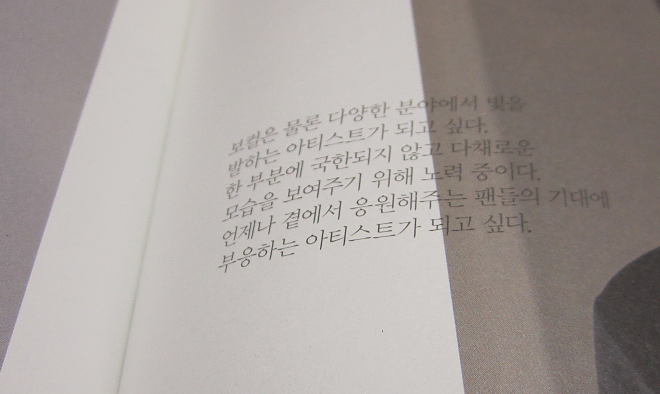 보컬은 물론 다양한 분야에서 빛을
발하는 아티스트가 되고 싶다.
한 부분에 국한되지 않고 다채로운
모습을 보여주기 위해 노력 중이다.
언제나 곁에서 응원해주는 팬들의 기대에
부응하는 아티스트가 되고 싶다.